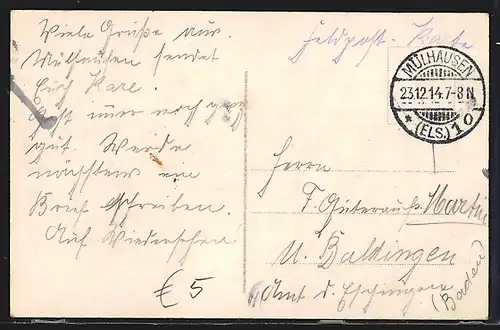 Viele Grüße aus
Mülhausen sendet
Euch Karl.
Es ist imer noch ganz
gut. Werde
nächstens ein
Brief schreiben.
Auf Wiedersehen!
€5
Feldpost-Karte
MÜLHAUSEN
23.12.14.7-8N
* (ELS.) 1 o
Herrn
F. Martin
U. Baldingen
Amt d.
(Baden)